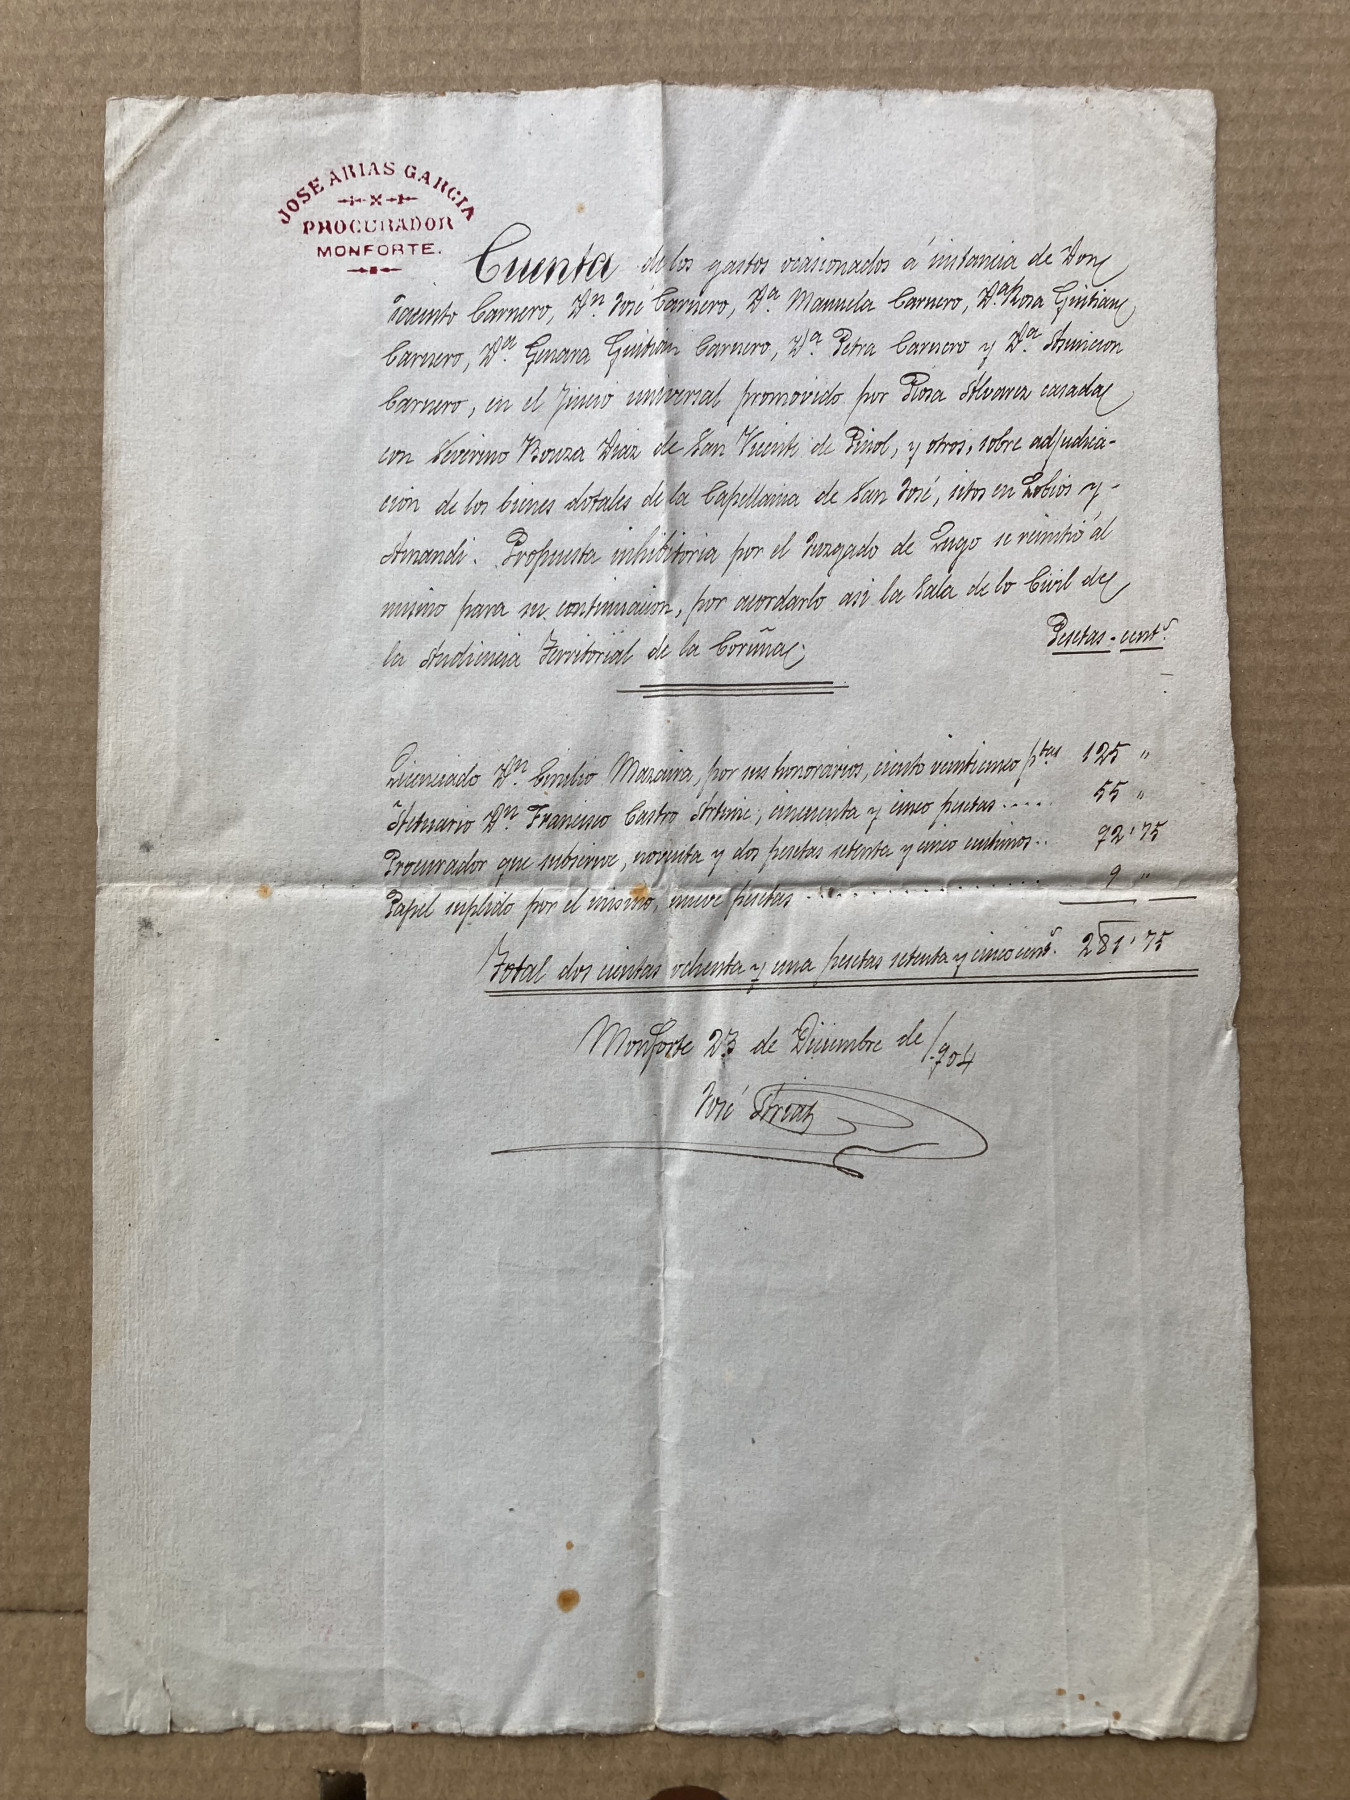 JOSE ARIAS GARCIA
PROCURADOR
MONFORTE.
Cuenta de los gastos ocasionados á instancia de Don
Jacinto Carnero, Dn. José Carnero, Dª Manuela Carnero, Dª Rosa Guitian
Carnero, Dª Genara Guitian Carnero, Dª Petra Carnero y Dª Asuncion
Carnero, en el juicio universal promovido por Rosa Alvarez casada
con Severino Bouza Diaz de San Vicente de Pinol, y otros, sobre adjudica-
ción de los bienes dotales de la Capellania de San José, sitos en Lobios y-
Amandi. Propuesta inhibitoria por el Juzgado de Lugo se remitió al
mismo para su continuacion, por acordarlo asi la Sala de lo Civil de
la Audiencia Territorial de la Coruña.
Pesetas - cents.
Licenciado Dn Emilio Mazaira, por sus honorarios, ciento veinticinco ptas 125 "
Actuario Dn Francisco Castro Artime, cincuenta y cinco pesetas .... 55 "
Procurador que suscrive, noventa y dos pesetas setenta y cinco centimos.. 92'75
Papel suplido por el mismo, nueve pesetas .............. 9 "
Total dos cientas ochenta y una pesetas setenta y cinco cents. 281'75
Monforte 23 de Diciembre de 1.904
José Arias